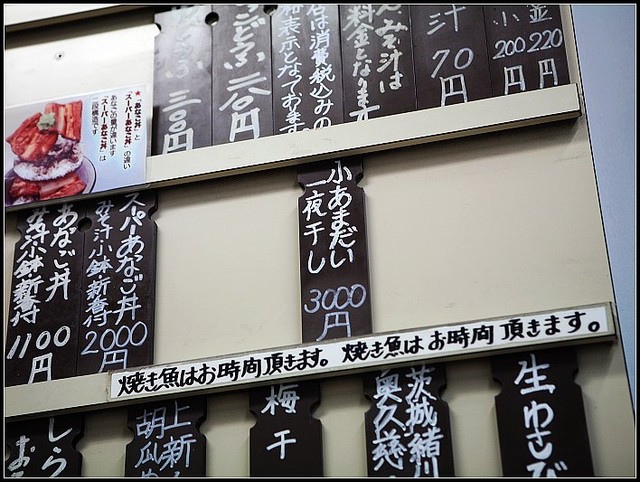 並
220円
小
200円
汁
70円
みそ汁は
料金となります
は消費税込みの
表示となっております
二〇〇円
三〇〇円
★「あなご丼」と
「スーパーあなご丼」の違い
あなごの量が違います
「スーパーあなご丼」は
二段構造です
小あまだい
一夜干し
3000円
スーパーあなご丼
みそ汁・小鉢・新香付
2000円
あなご丼
みそ汁・小鉢・新香付
1100円
焼き魚はお時間頂きます。焼き魚はお時間頂きます。
生ゆさび
茨城緒川
奥久慈
梅干
上新
胡瓜
しら
お